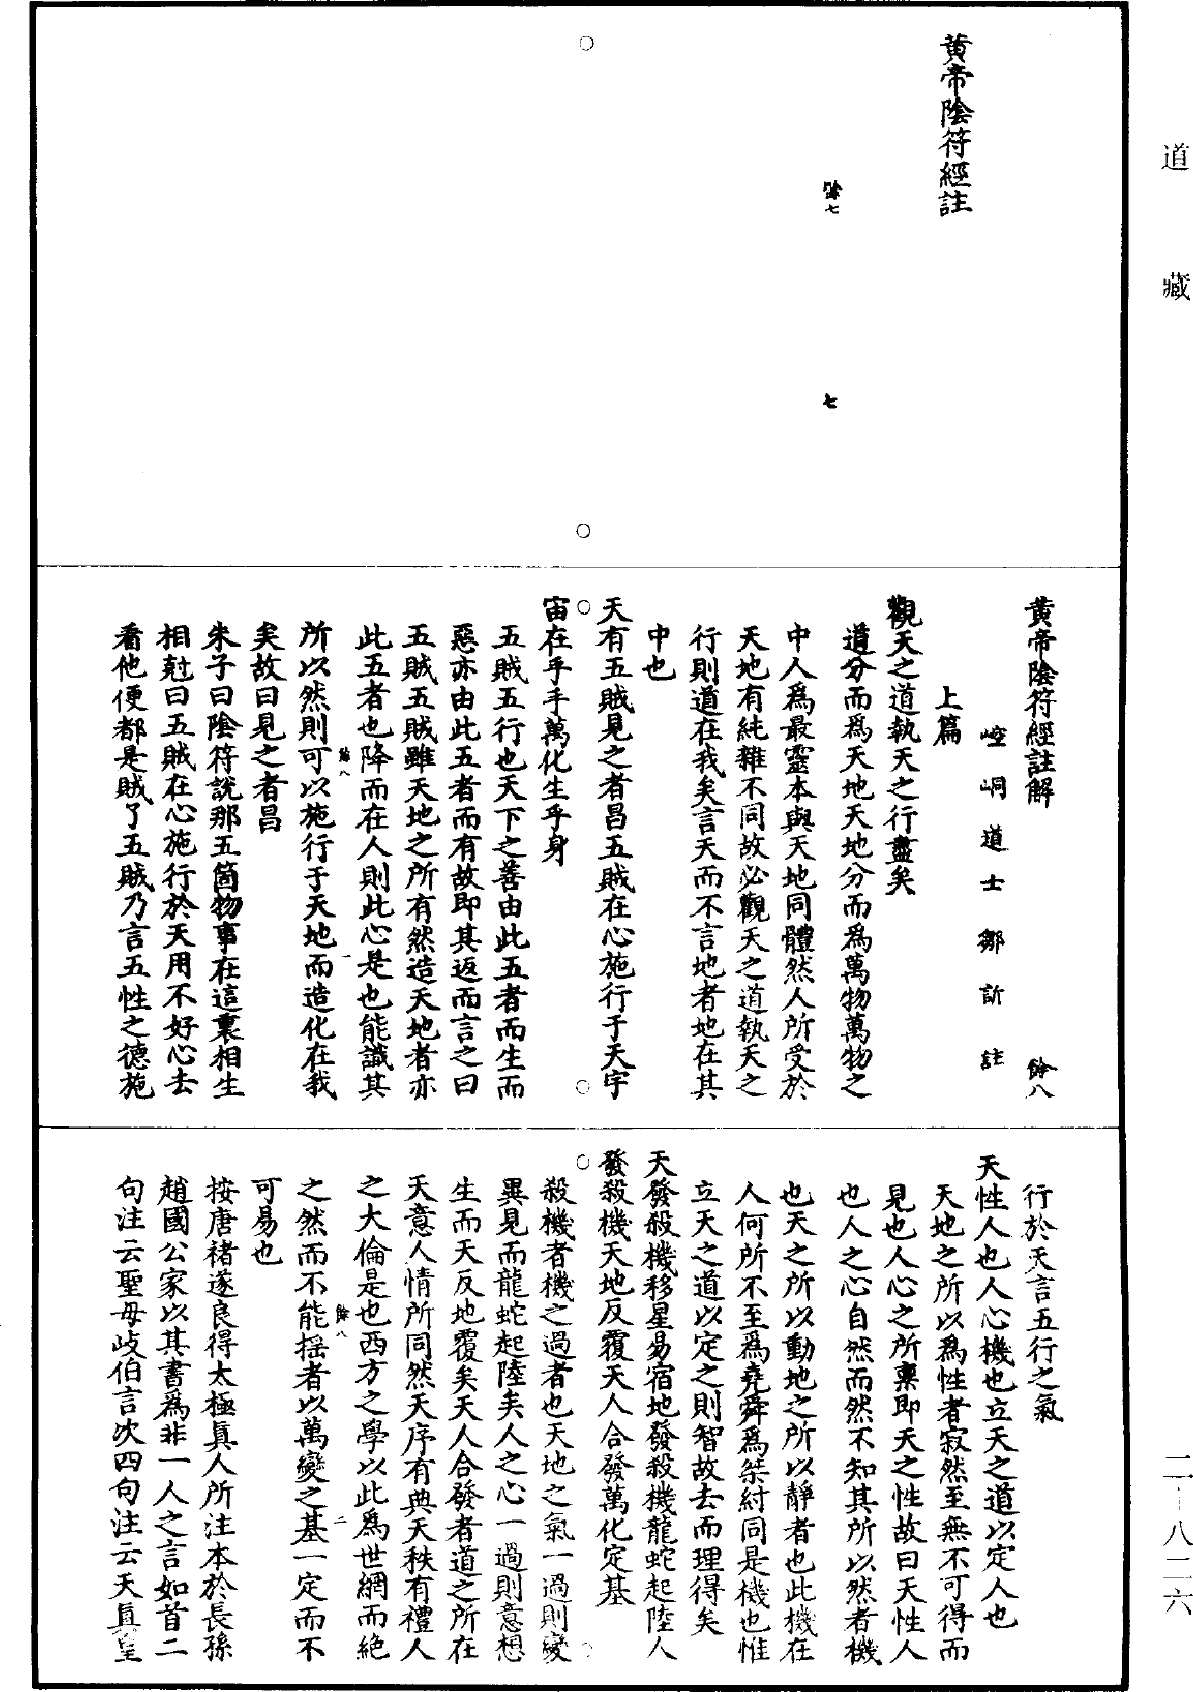 道藏
黃帝陰符經註
餘七
七
黃帝陰符經註解
餘八
崆峒道士鄒訢註
上篇
觀天之道執天之行盡矣
道分而爲天地天地分而爲萬物萬物之
中人爲最靈本與天地同體然人所受於
天地有純雜不同故必觀天之道執天之
行則道在我矣言天而不言地者地在其
中也
天有五賊見之者昌五賊在心施行于天宇
宙在乎手萬化生乎身
五賊五行也天下之善由此五者而生而
惡亦由此五者而有故即其返而言之曰
五賊五賊雖天地之所有然造天地者亦
此五者也降而在人則此心是也能識其
所以然則可以施行于天地而造化在我
餘八
一
矣故曰見之者昌
朱子曰陰符說那五箇物事在這裏相生
相尅曰五賊在心施行於天用不好心去
看他便都是賊了五賊乃言五性之德施
行於天言五行之氣
天性人也人心機也立天之道以定人也
天地之所以爲性者寂然至無不可得而
見也人心之所稟即天之性故曰天性人
也人之心自然而然不知其所以然者機
也天之所以動地之所以靜者也此機在
人何所不至爲堯舜爲桀紂同是機也惟
立天之道以定之則智故去而理得矣
天發殺機移星易宿地發殺機龍蛇起陸人
發殺機天地反覆天人合發萬化定基
殺機者機之過者也天地之氣一過則變
異見而龍蛇起陸矣人之心一過則意想
生而天反地覆矣天人合發者道之所在
天意人情所同然天序有典天秩有禮人
之大倫是也西方之學以此爲世網而絕
之然而不能搖者以萬變之基一定而不
餘八
二
可易也
按唐褚遂良得太極眞人所注本於長孫
趙國公家以其書爲非一人之言如首二
句注云聖母岐伯言次四句注云天眞皇
二十八二六